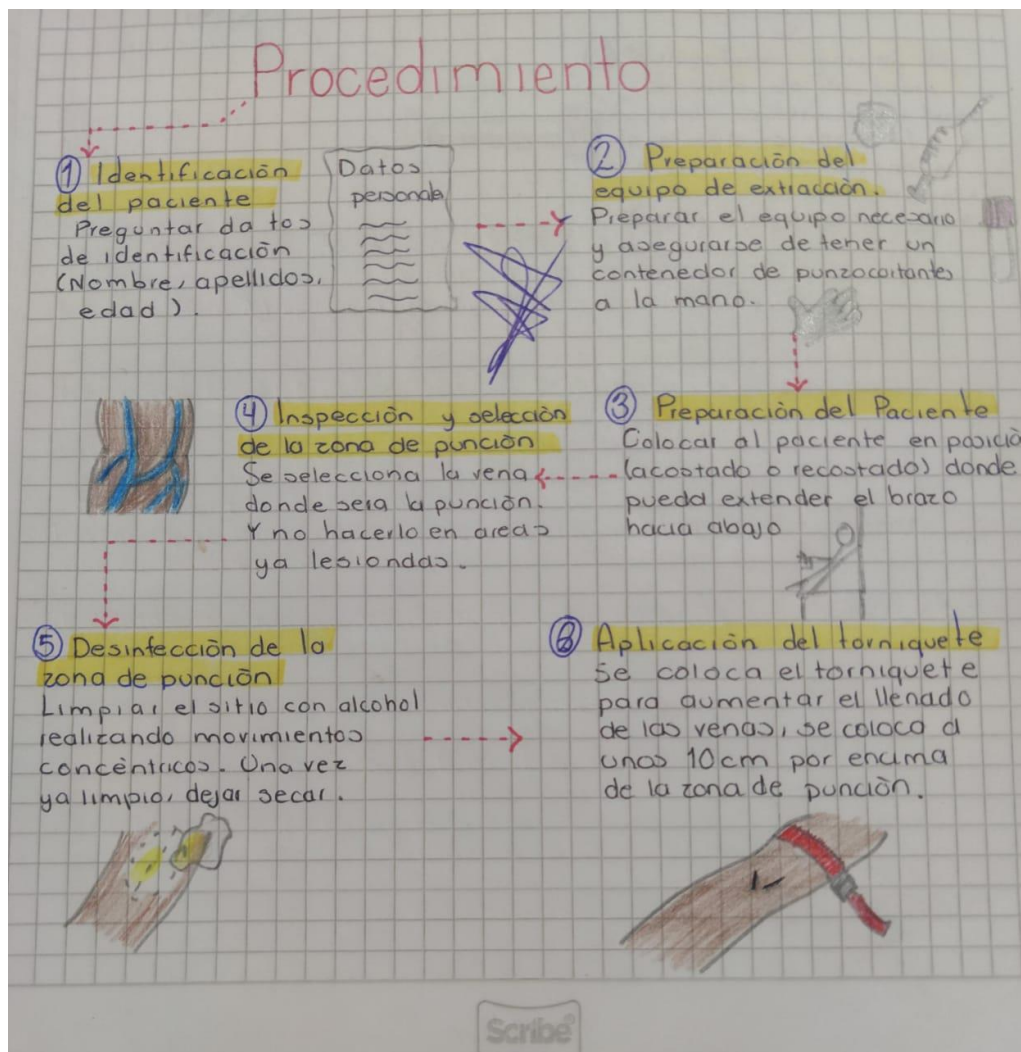 Procedimiento
① Identificación
del paciente
Preguntar datos
de identificación
(Nombre, apellidos,
edad).
Datos
personale
② Preparación del
equipo de extracción.
Preparar el equipo necesario
y asegurarse de tener un
contenedor de punzocortantes
a la mano.
③ Preparación del Paciente
Colocar al paciente en posició
(acostado o recostado) donde
pueda extender el brazo
hacia abajo
④ Inspección y selección
de la zona de punción
Se selecciona la vena
donde sera la punción.
Y no hacerlo en areas
ya lesiondas.
⑤ Desinfección de la
zona de punción
Limpiar el sitio con alcohol
realizando movimientos
concéntricos. Una vez
ya limpio, dejar secar.
⑥ Aplicación del torniquete
Se coloca el torniquete
para aumentar el llenado
de las venas, se coloca a
unos 10cm por encima
de la zona de punción.
Scribe®